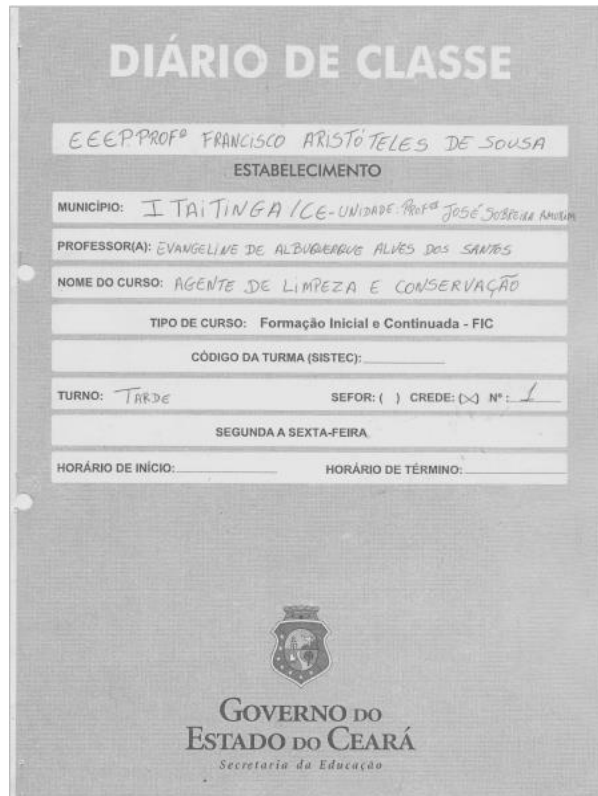 DIÁRIO DE CLASSE
EEEP PROFº FRANCISCO ARISTÓTELES DE SOUSA
ESTABELECIMENTO
MUNICÍPIO: ITAITINGA/CE-UNIDADE: PROFº JOSÉ SOBREIRA AMORIM
PROFESSOR(A): EVANGELINE DE ALBUQUERQUE ALVES DOS SANTOS
NOME DO CURSO: AGENTE DE LIMPEZA E CONSERVAÇÃO
TIPO DE CURSO: Formação Inicial e Continuada - FIC
CÓDIGO DA TURMA (SISTEC):
TURNO: TARDE SEFOR: ( ) CREDE: (X) Nº: 1
SEGUNDA A SEXTA-FEIRA
HORÁRIO DE INÍCIO: HORÁRIO DE TÉRMINO:
GOVERNO DO
ESTADO DO CEARÁ
Secretaria da Educação